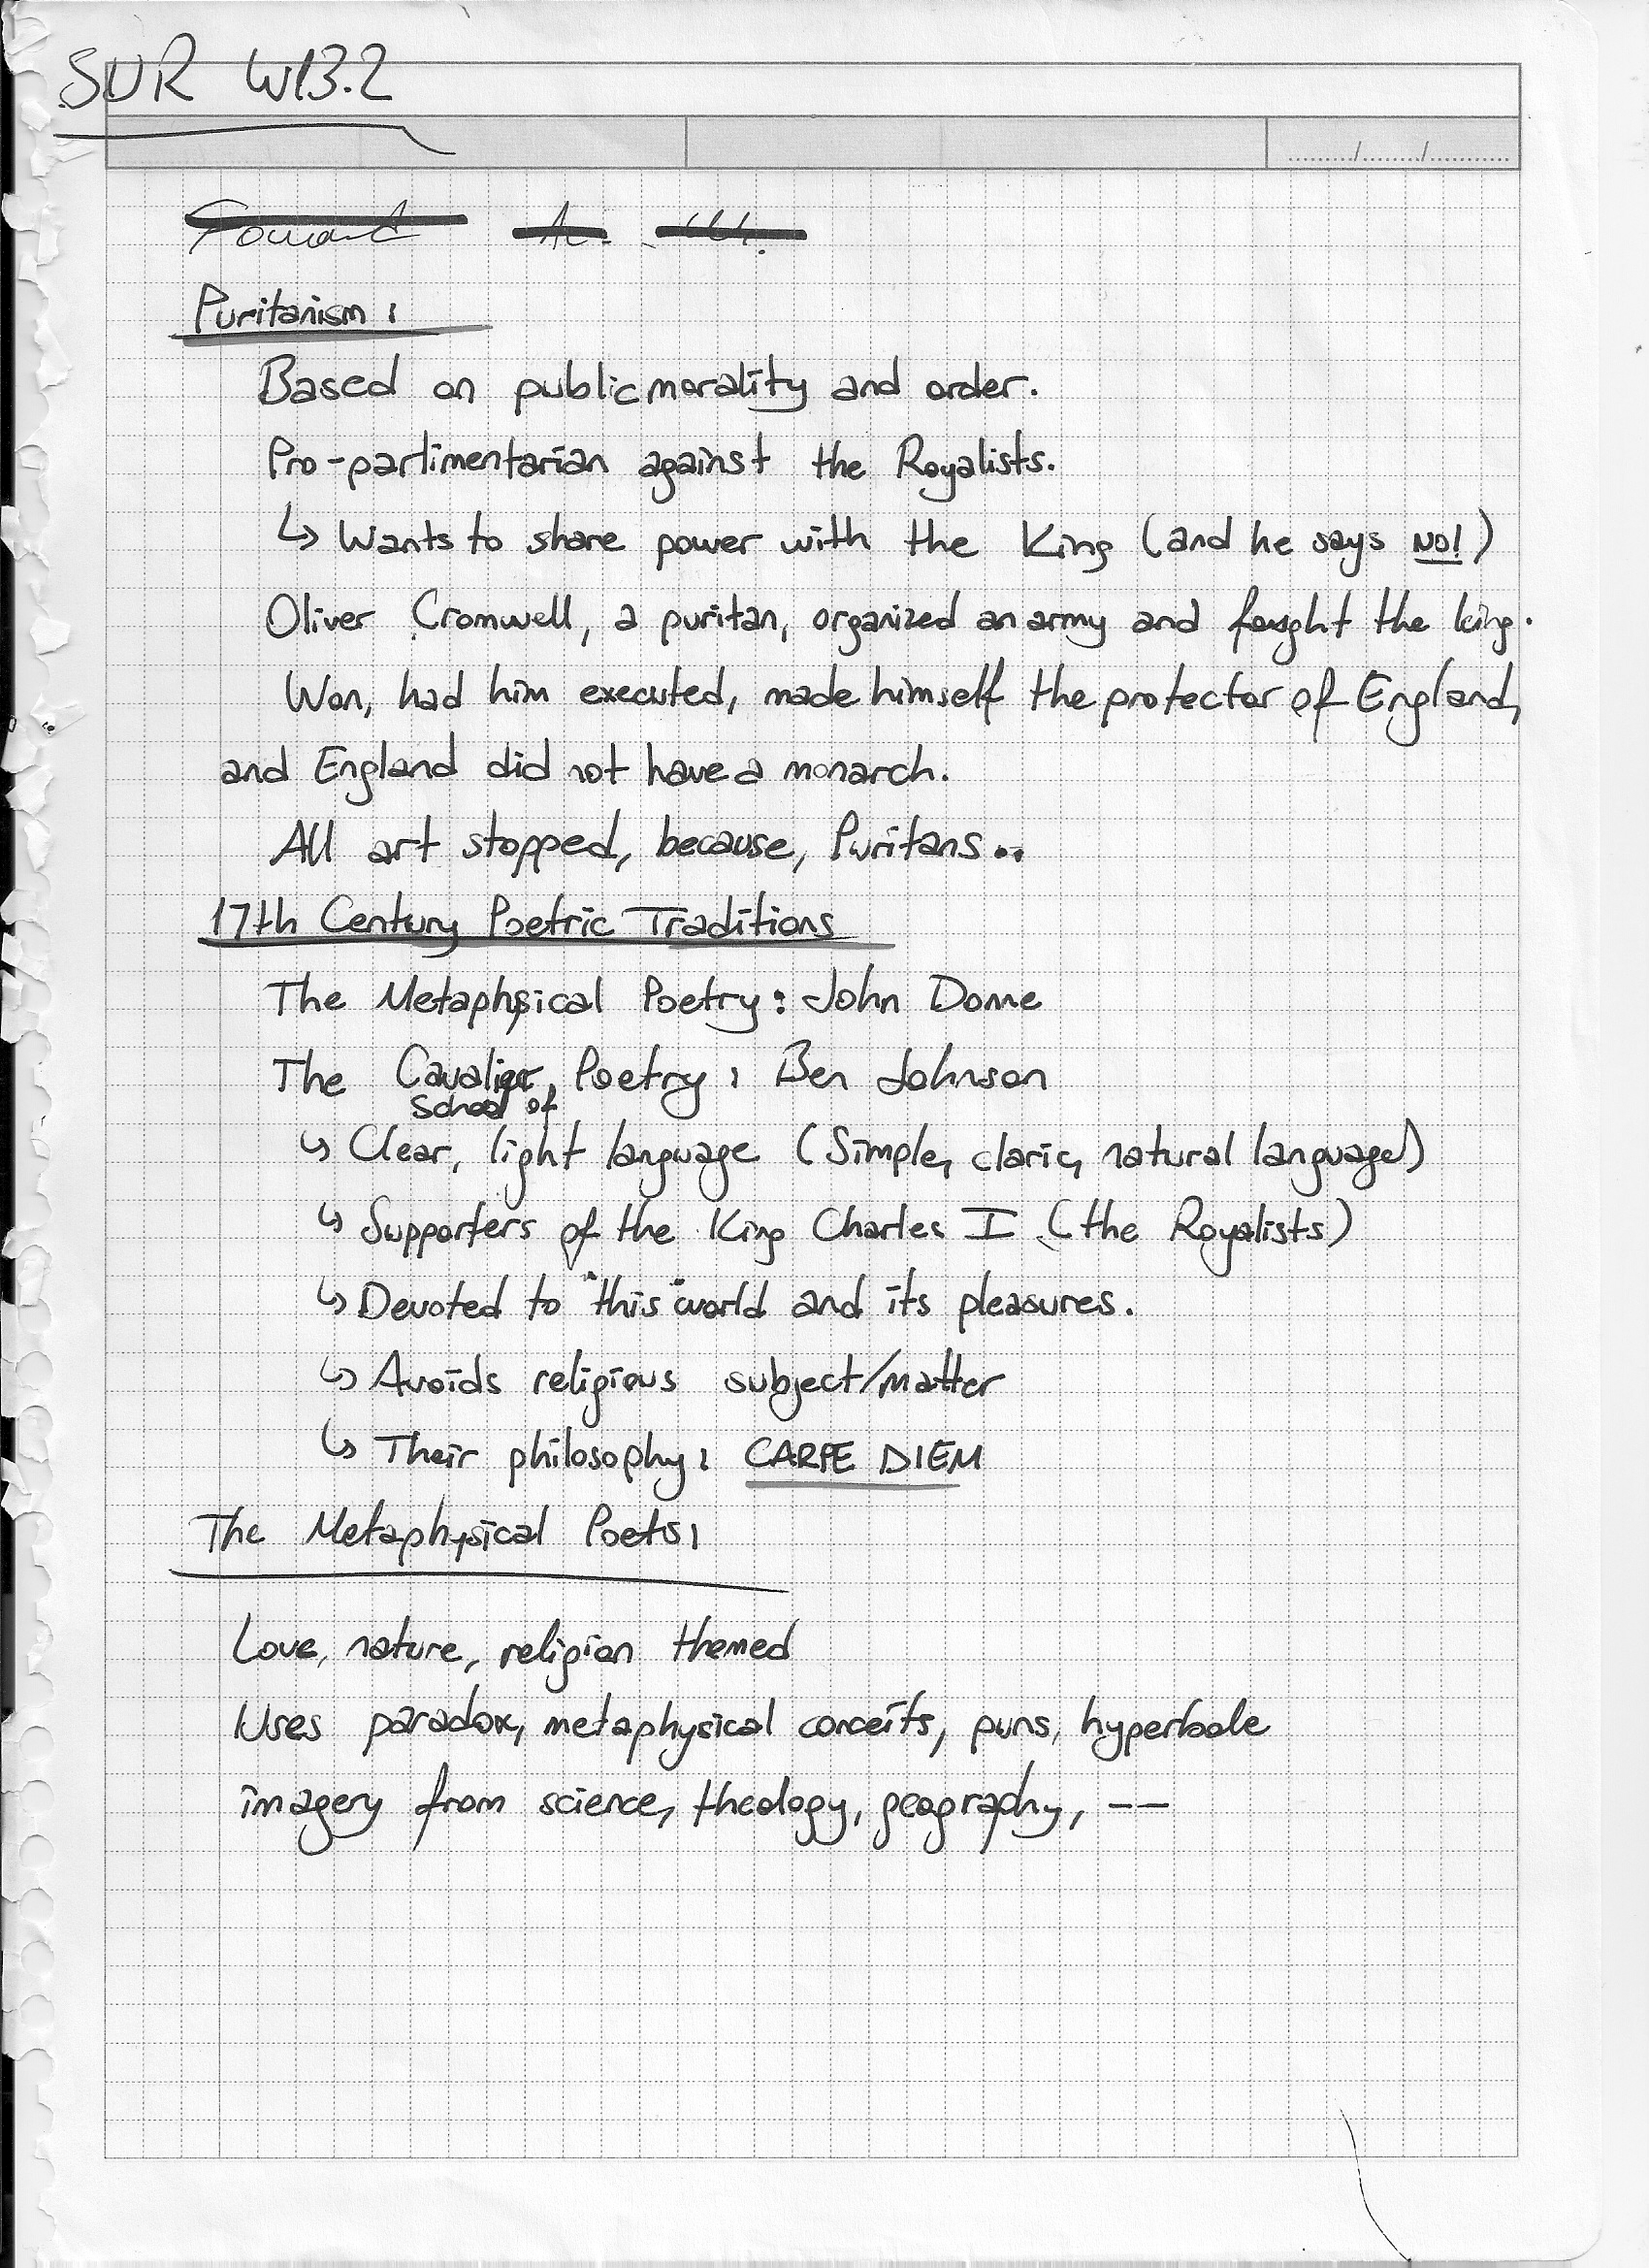 SUR W13.2
Puritanism:
Based on public morality and order.
Pro-parlimentarian against the Royalists.
↳ Wants to share power with the King (and he says NO!)
Oliver Cromwell, a puritan, organized an army and fought the king.
Won, had him executed, made himself the protector of England,
and England did not have a monarch.
All art stopped, because, Puritans..
17th Century Poetric Traditions
The Metaphysical Poetry: John Donne
The Cavalier Poetry: Ben Johnson
School of
↳ Clear, light language (Simple, claric, natural language)
↳ Supporters of the King Charles I (the Royalists)
↳ Devoted to "this" world and its pleasures.
↳ Avoids religious subject/matter
↳ Their philosophy: CARPE DIEM
The Metaphysical Poets:
Love, nature, religion themed
Uses paradox, metaphysical conceits, puns, hyperbole
imagery from science, theology, geography, --